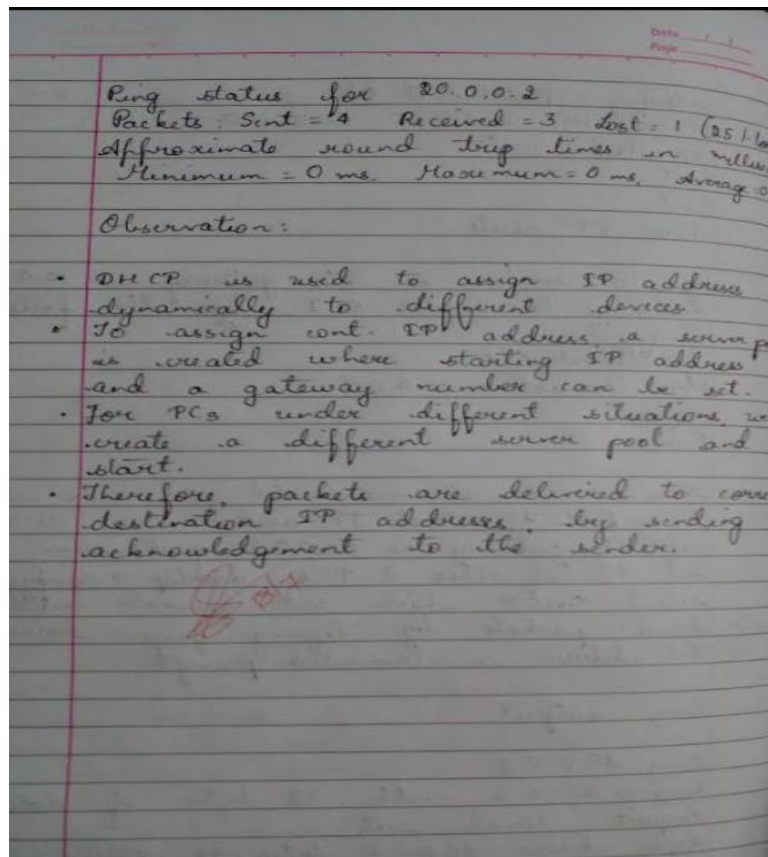 Date / /
Page
Ping status for 20.0.0.2
Packets: Sent = 4 Received = 3 Lost = 1 (25%
Approximate round trip times in
Minimum = 0 ms, Maximum = 0 ms, Average
Observation:
• DHCP is used to assign IP address
dynamically to different devices.
• To assign cont. IP address, a server
is created where starting IP address
and a gateway number can be set.
• For PCs under different situations,
create a different server pool and
start.
• Therefore, packets are delivered to
destination IP addresses, by sending
acknowledgement to the sender.